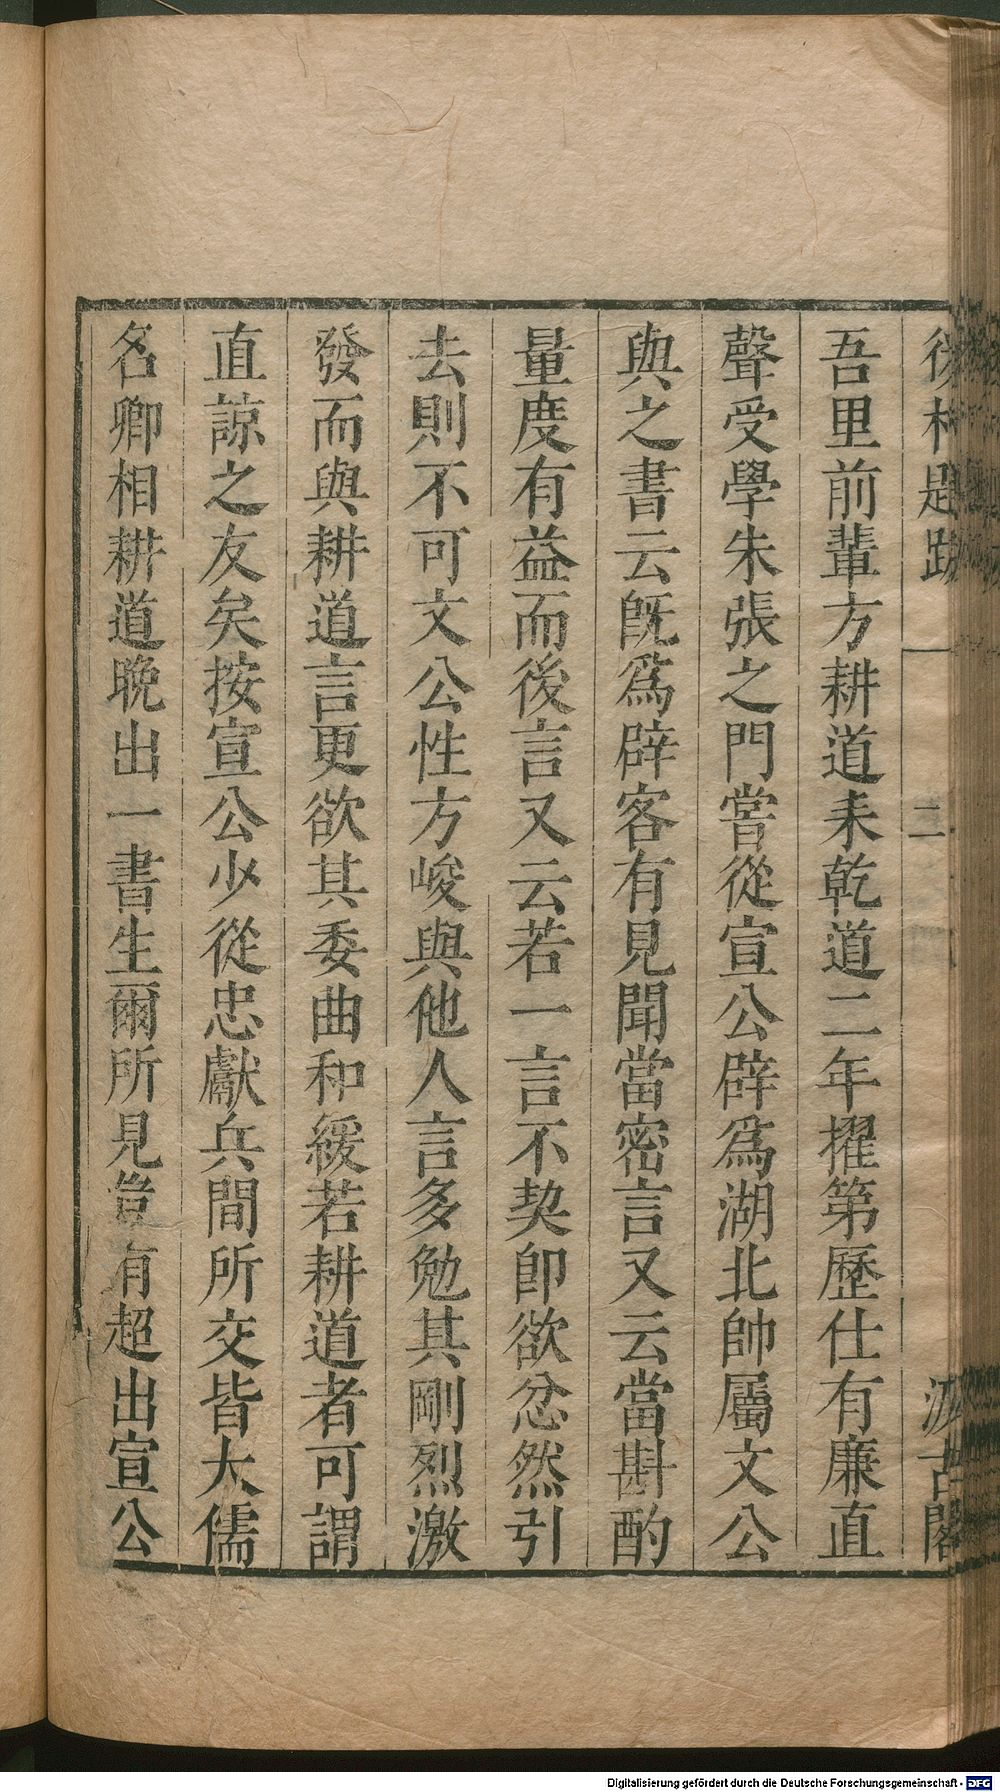 後村題跋 二 汲古閣
吾里前輩方耕道耒乾道二年擢第歷仕有廉直
聲受學朱張之門嘗從宣公辟爲湖北帥屬文公
與之書云旣爲辟客有見聞當密言又云當斟酌
量度有益而後言又云若一言不契卽欲忿然引
去則不可文公性方峻與他人言多勉其剛烈激
發而與耕道言更欲其委曲和緩若耕道者可謂
直諒之友矣按宣公少從忠獻兵間所交皆大儒
名卿相耕道晚出一書生爾所見豈有超出宣公
Digitalisierung gefördert durch die Deutsche Forschungsgemeinschaft - DFG